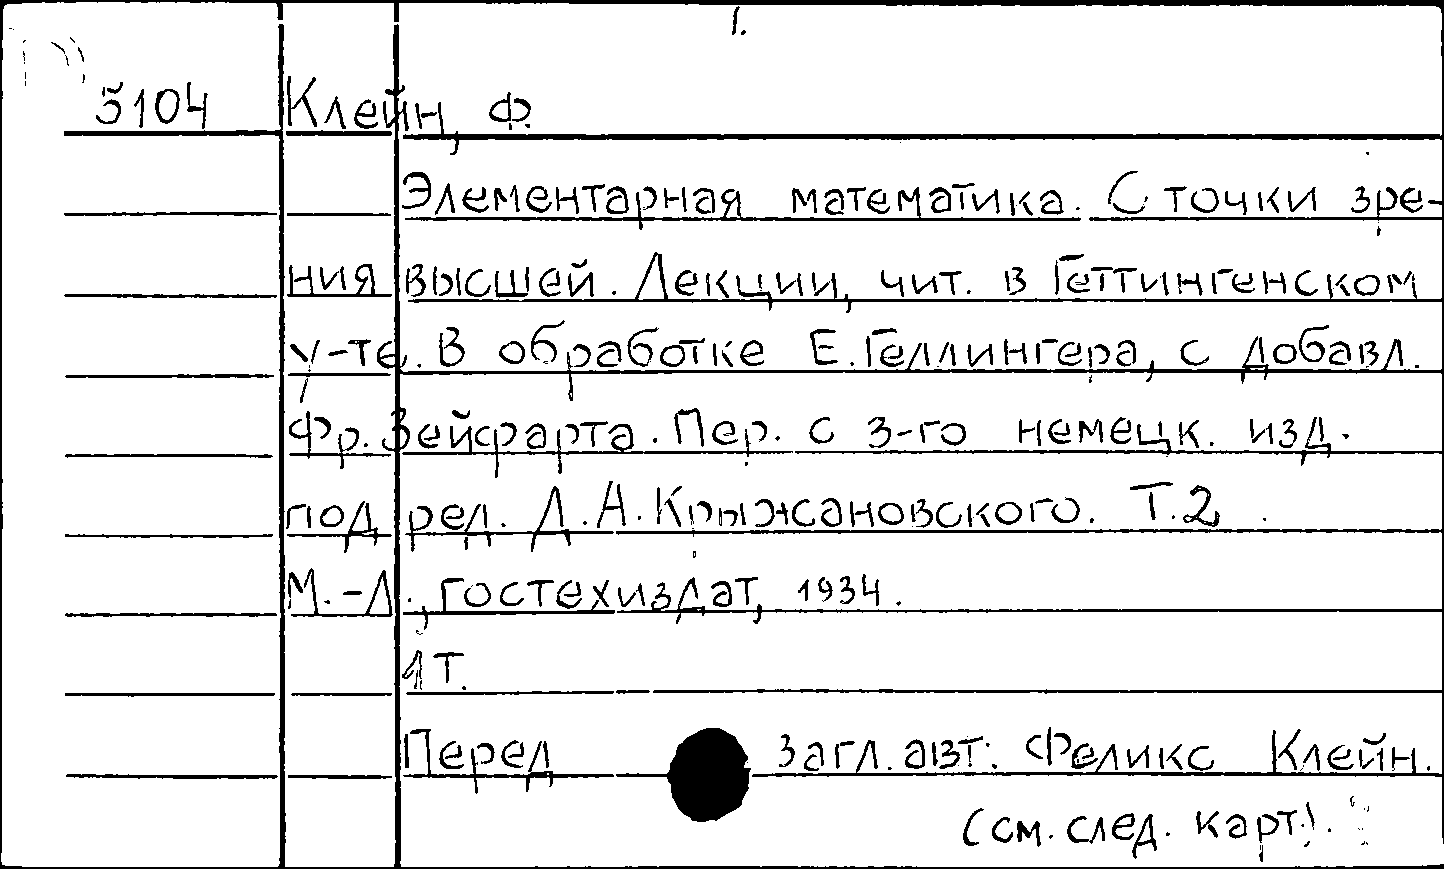 1.
5104 Клейн, Ф.
Элементарная математика. С точки зре-
ния высшей. Лекции, чит. в Геттингенском
у-те. В обработке Е. Геллингера, с добавл.
Фр. Зейфарта. Пер. с 3-го немецк. изд.
под ред. Д. А. Крыжановского. Т. 2
М.-Л., гостехиздат, 1934.
1 т.
Перед загл. авт.: Феликс Клейн.
(см. след. карт.).